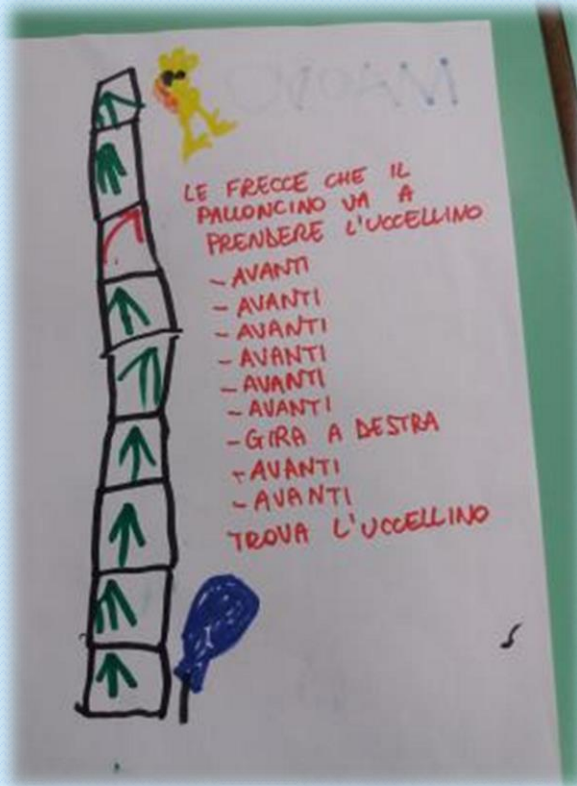 LE FRECCE CHE IL
PALLONCINO VA A
PRENDERE L'UCCELLINO
- AVANTI
- AVANTI
- AVANTI
- AVANTI
- AVANTI
- AVANTI
- GIRA A DESTRA
- AVANTI
- AVANTI
TROVA L'UCCELLINO